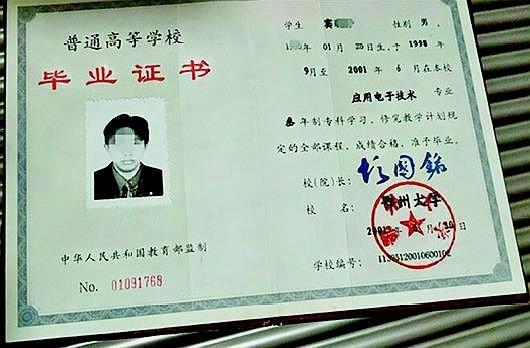 普通高等学校
毕业证书
中华人民共和国教育部监制
No. 01091768
学生 性别 男,
01月25日生,于1998
9月至 2001年 6月在本校
应用电子技术 专业
叁年制专科学习,修完教学计划规
定的全部课程,成绩合格,准予毕业。
校(院)长:
校 名: 州大学
学校编号: